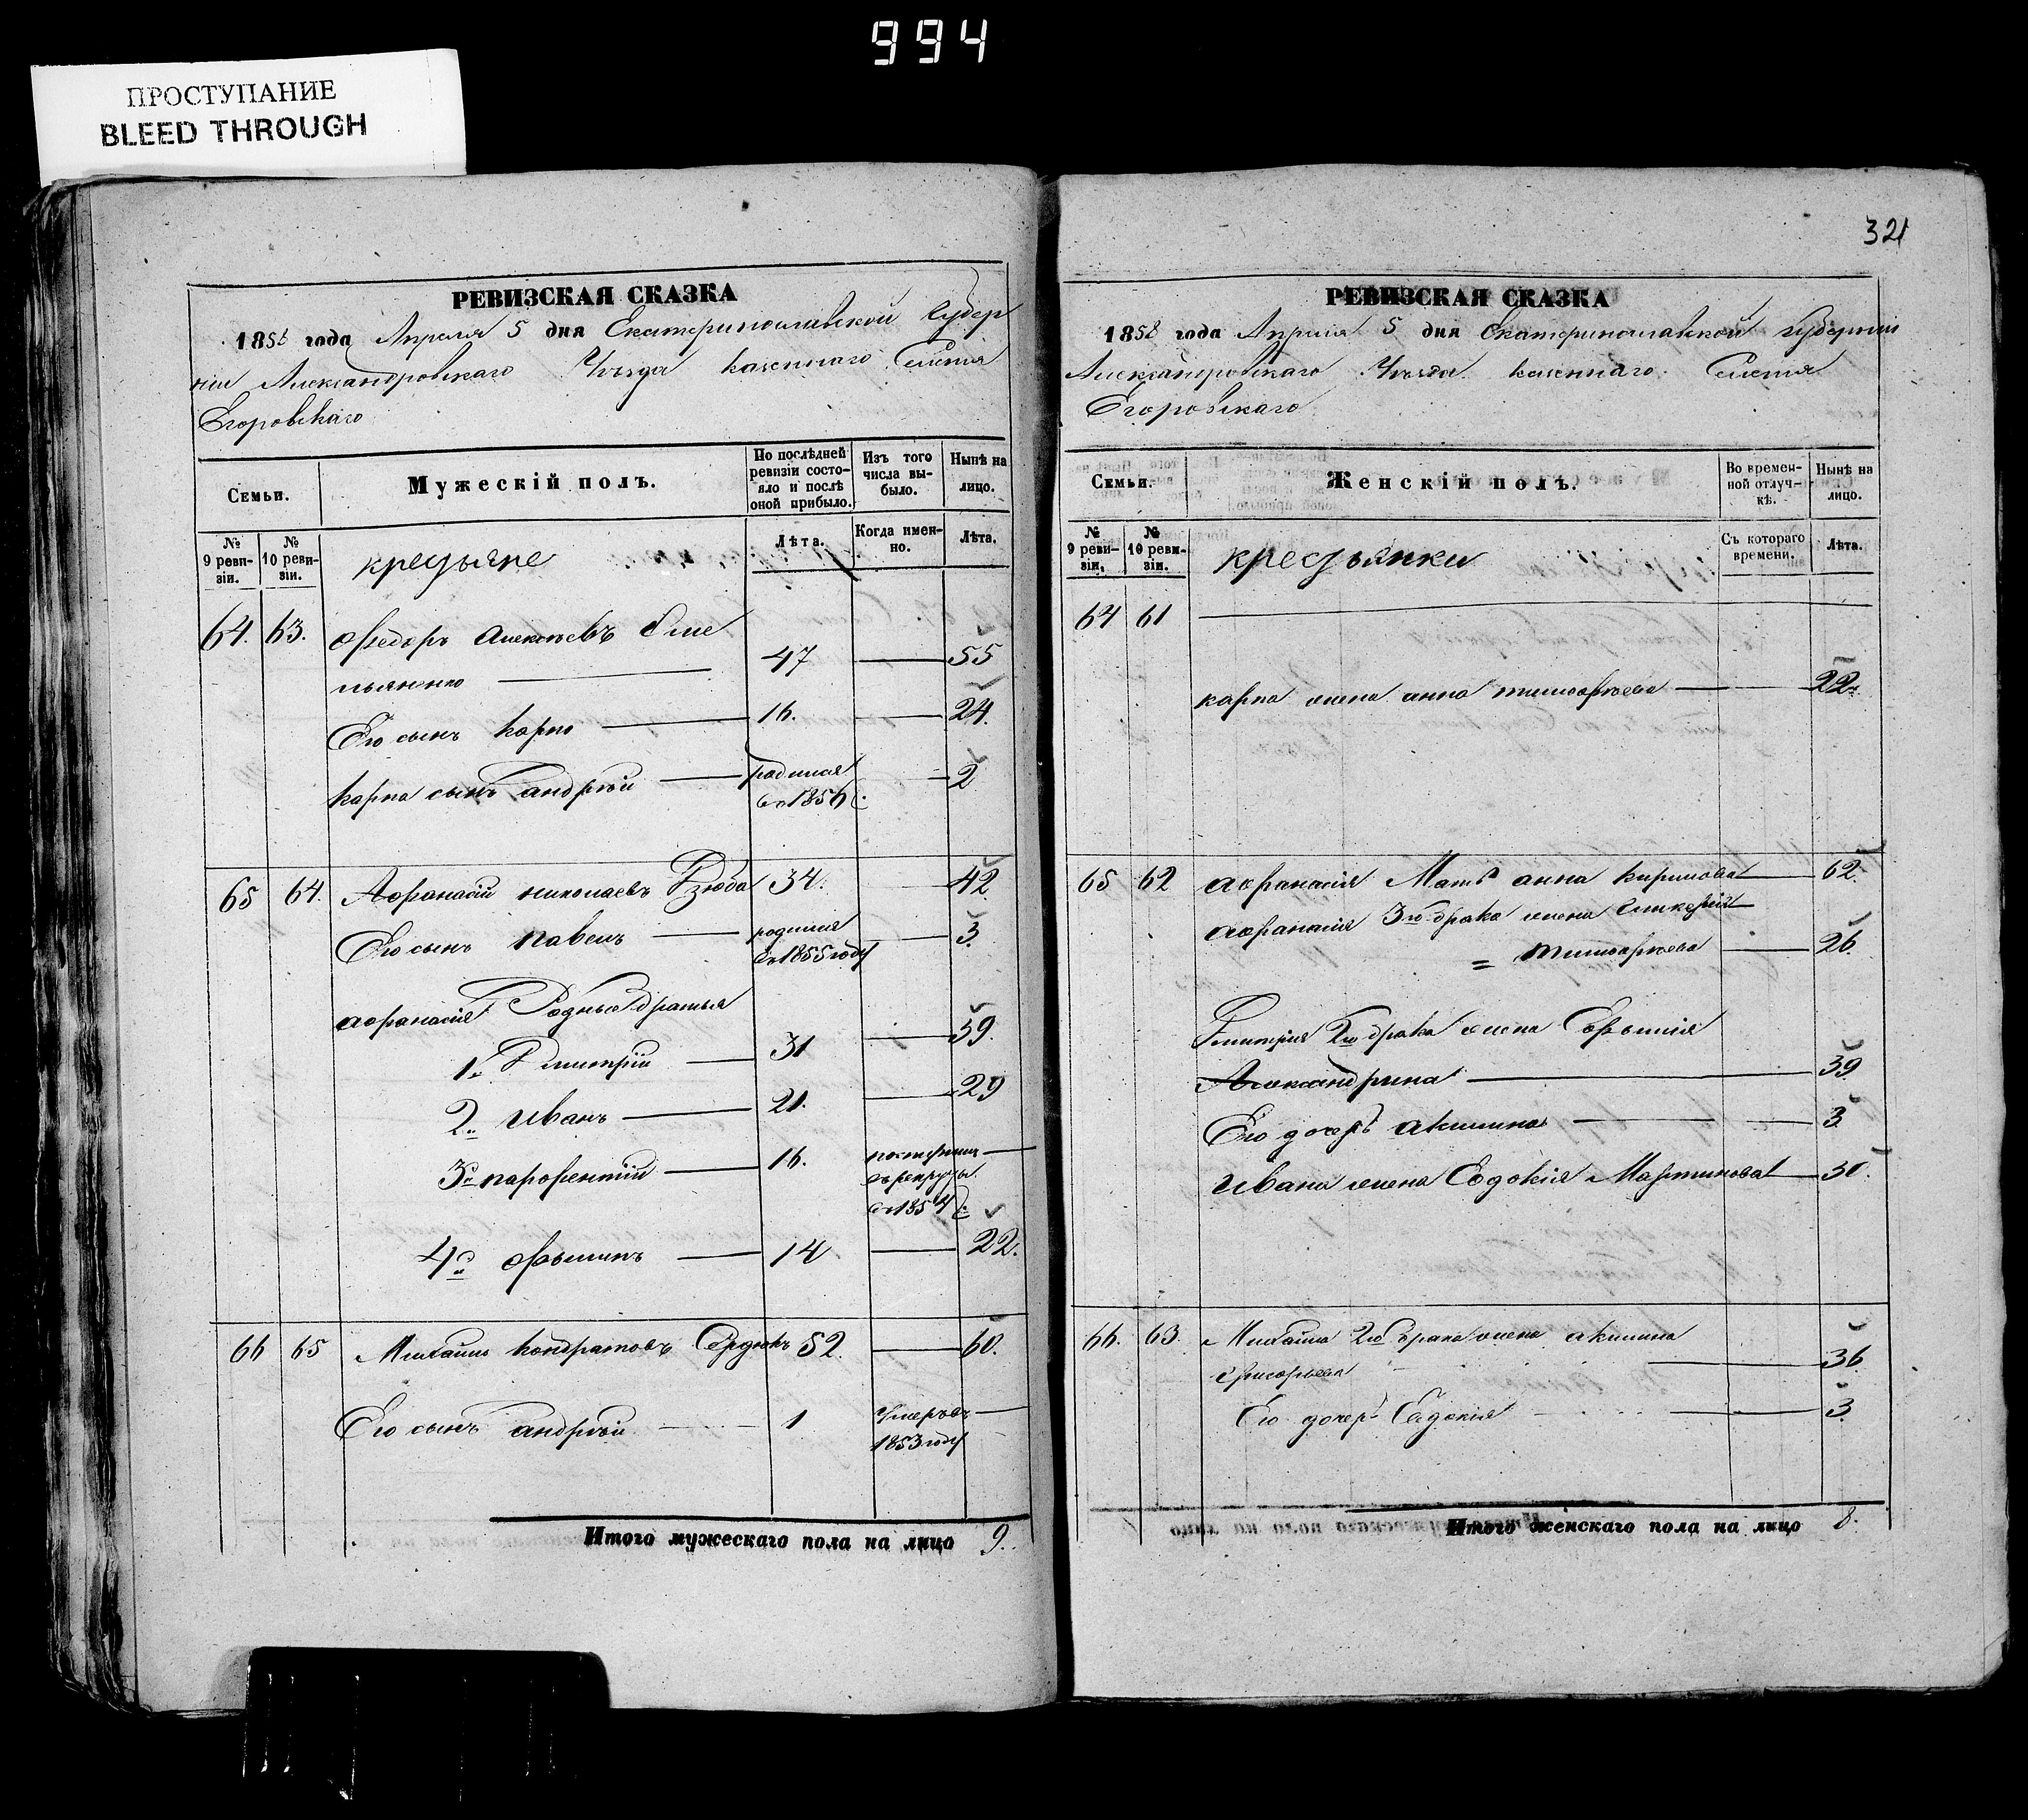 994
ПРОСТУПАНИЕ
BLEED THROUGH
РЕВИЗСКАЯ СКАЗКА
1858 года Апреля 5 дня Екатеринославской Губер
ніи Александровскаго Уѣзда казеннаго Селенія
Егоровскаго
Семьи.
Мужескій полъ.
По послѣдней ревизіи состо-
яло и послѣ
оной прибыло.
Изъ того
числа вы-
было.
Нынѣ на
лицо.
№
9 реви-
зіи.
№
10 реви-
зіи.
крестьяне
Лѣта.
Когда имен-
но.
Лѣта.
64. 63. Федоръ Алексѣевъ Оме
льяненко 47 55
Его сынъ карпо 16. 24.
карпа сынъ андрѣй родился 2
въ 1856 г.
65 64. Афанасій николаевъ Дзюба 34. 42
Его сынъ павелъ родился 3.
въ 1855 году
афанасія Родные братья
1й Дмитрій 31 39.
2й иванъ 21. 29
3й парфентій 16. поступилъ
въ рекруты
въ 1854 г.
4й филипъ 14 22.
66 65 Михайло кондратовъ Сердюкъ 52. 60.
Его сынъ андрѣй 1 умеръ въ
1853 году
Итого мужескаго пола на лицо 9.
321
РЕВИЗСКАЯ СКАЗКА
1858 года Апреля 5 дня Екатеринославской губерніи
Александровскаго Уѣзда казеннаго Селенія
Егоровскаго
Семьи.
Женскій полъ.
Во времен-
ной отлуч-
кѣ.
Нынѣ на
лицо.
№
9 реви-
зіи.
№
10 реви-
зіи.
крестьянки
Съ котораго
времени.
Лѣта.
64 61
карпа жена анна тимофѣева 22.
65 62 афанасія Мать анна кирилова 62.
афанасія 3го брака жена Гликерія
= тимофѣева 26.
Дмитрія 2го брака жена
Александрина 39
Его дочерь акилина 3
ивана жена Евдокія Мартинова 30.
66. 63. Михайла 2го брака жена акилина
григорьева 36
Его дочерь Евдокія 3.
Итого женскаго пола на лицо 8.